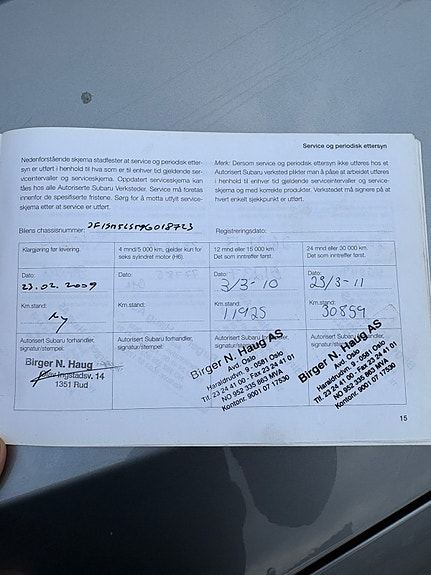 Service og periodisk ettersyn
Nedenforstående skjema stadfester at service og periodisk etter-
syn er utført i henhold til hva som er til enhver tid gjeldende ser-
viceintervaller og serviceskjema. Oppdatert serviceskjema kan
fåes hos alle Autoriserte Subaru Verksteder. Service må foretas
innenfor de spesifiserte fristene. Sørg for å motta utfylt service-
skjema etter at service er utført.
Merk: Dersom service og periodisk ettersyn ikke utføres hos et
Autorisert Subaru verksted plikter man å påse at arbeidet utføres
i henhold til enhver tid gjeldende serviceintervaller og service-
skjema og med korrekte produkter. Verkstedet må signere på at
hvert enkelt sjekkpunkt er utført.
Bilens chassisnummer:
Registreringsdato:
Klargjøring før levering.
Dato:
23.02.2009
Km.stand:
Ny
Autorisert Subaru forhandler,
signatur/stempel:
Birger N. Haug
Ingstadsv. 14
1351 Rud
4 mnd/5 000 km, gjelder kun for
seks sylindret motor (H6).
Dato:
Km.stand:
Autorisert Subaru forhandler,
signatur/stempel:
12 mnd eller 15 000 km.
Det som inntreffer først.
Dato:
3/3-10
Km.stand:
11925
Autorisert Subaru forhandler,
signatur/stempel:
Birger N. Haug AS
Avd. Oslo
Haraldrudvn. 9 - 0581 Oslo
Tlf. 23 24 41 00 - Fax 23 24 41 01
NO 952 335 863 MVA
Kontonr. 9001 07 17530
24 mnd eller 30 000 km.
Det som inntreffer først.
Dato:
23/3-11
Km.stand:
30859
Autorisert Subaru forhandler,
signatur/stempel:
Birger N. Haug AS
Avd. Oslo
Haraldrudvn. 9 - 0581 Oslo
Tlf. 23 24 41 00 - Fax 23 24 41 01
NO 952 335 863 MVA
Kontonr. 9001 07 17530
15